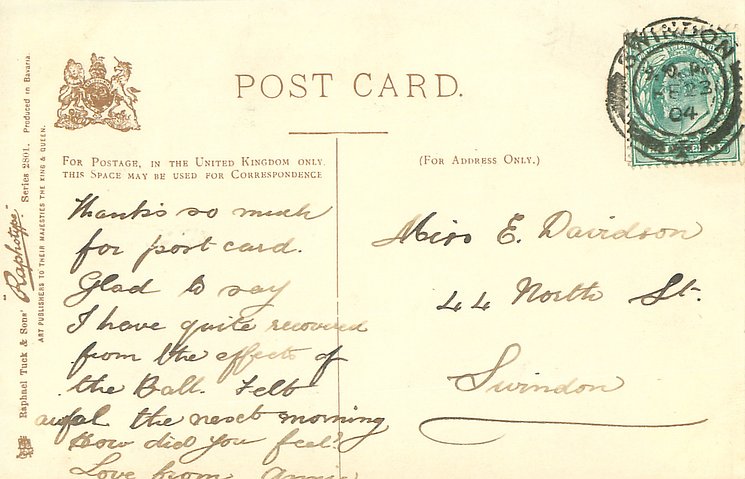 POST CARD.
FOR POSTAGE, IN THE UNITED KINGDOM ONLY.
THIS SPACE MAY BE USED FOR CORRESPONDENCE
(FOR ADDRESS ONLY.)
Thanks so much
for post card.
Glad to say
I have quite recovered
from the effects of
the Ball. Felt
awful the next morning
How did you feel?
Love from Annie
Miss E. Davidson
44 North St.
Swindon
SWINDON
FE 23
04
Raphael Tuck & Sons' "Raphotype" Series 2801. Produced in Bavaria.
ART PUBLISHERS TO THEIR MAJESTIES THE KING & QUEEN.